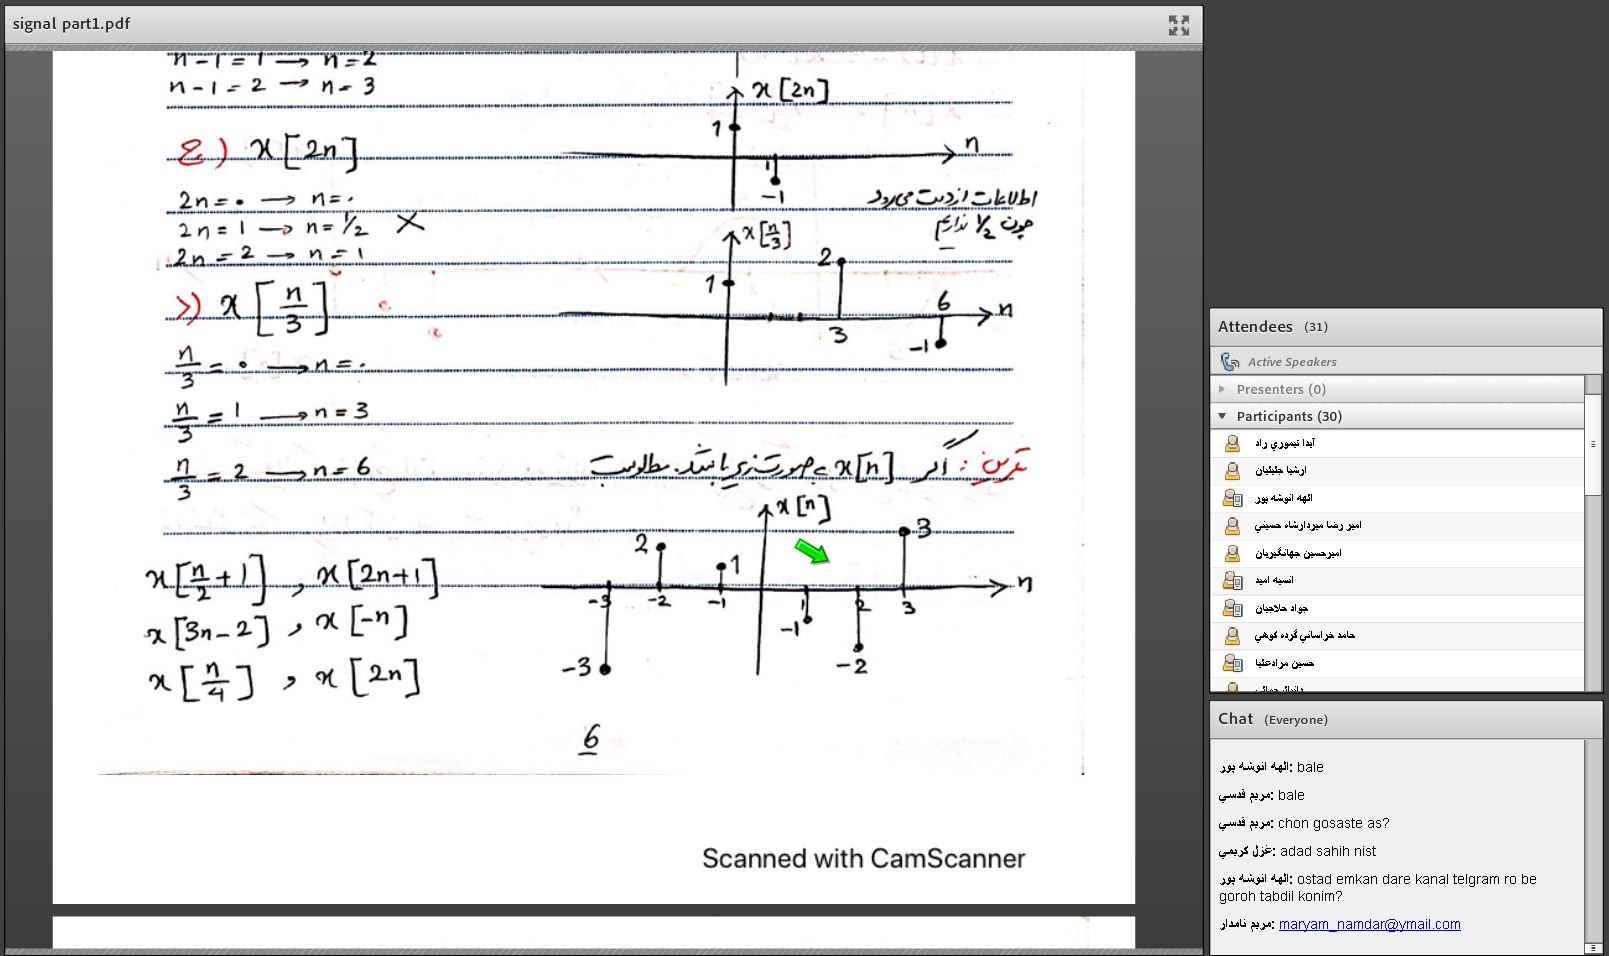 signal part1.pdf
n-1=1 → n=2
n-1=2 → n=3
x[2n]
1
n
-1
ج) x[2n]
2n=۰ → n=۰
2n=1 → n=1/2 ×
2n=2 → n=1
اطلاعات از دست می‌رود
چون 1/2 نداریم
د) x[n/3]
x[n/3]
2
1
6
n
3
-1
n/3=۰ → n=۰
n/3=1 → n=3
n/3=2 → n=6
تمرین: اگر x[n] به صورت زیر باشد. مطلوبست
x[n]
3
2
1
n
-3 -2 -1 1 2 3
-1
-2
-3
x[n/2+1] , x[2n+1]
x[3n-2] , x[-n]
x[n/4] , x[2n]
6
Scanned with CamScanner
Attendees (31)
Active Speakers
Presenters (0)
Participants (30)
آيدا تيموري راد
ارشيا جليليان
الهه انوشه پور
امير رضا ميردارشاه حسيني
اميرحسين جهانگيريان
انسيه اميد
جواد حلاجيان
حامد خراساني گرده كوهي
حسين مرادعليا
Chat (Everyone)
الهه انوشه پور: bale
مريم قدسي: bale
مريم قدسي: chon gosaste as?
غزل كريمي: adad sahih nist
الهه انوشه پور: ostad emkan dare kanal telgram ro be
goroh tabdil konim?
مريم نامدار: maryam_namdar@ymail.com